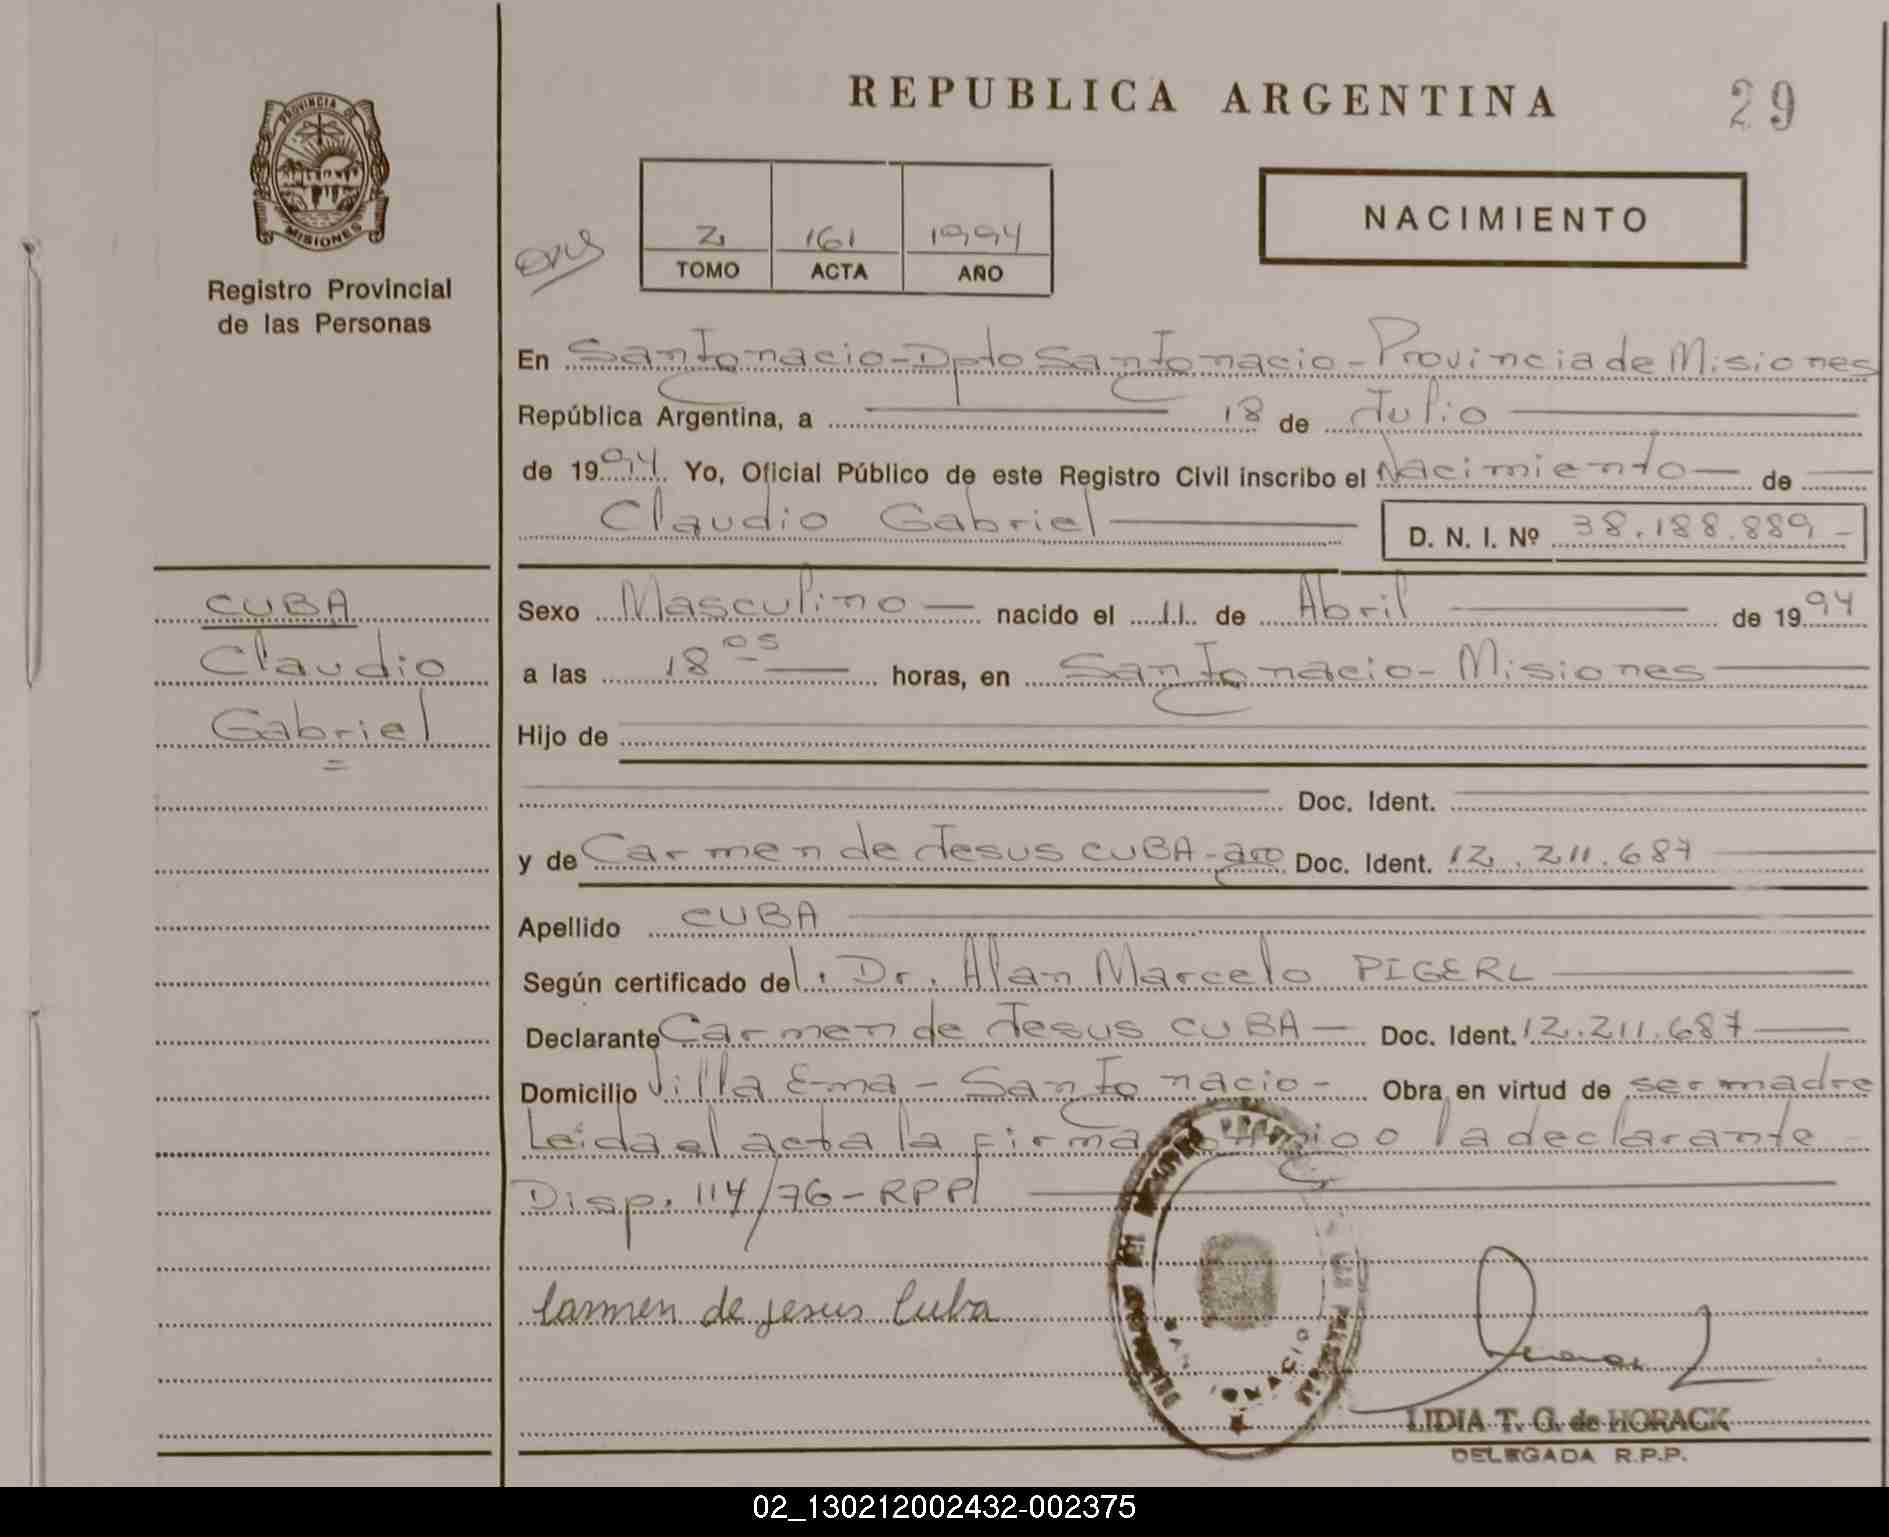 REPUBLICA ARGENTINA
29
PROVINCIA DE
MISIONES
Registro Provincial
de las Personas
2 161 1994
TOMO ACTA AÑO
NACIMIENTO
En San Ignacio - Dpto San Ignacio - Provincia de Misiones
República Argentina, a 18 de Julio
de 1994 Yo, Oficial Público de este Registro Civil inscribo el Nacimiento de
Claudio Gabriel
D. N. I. Nº 38.188.889 -
CUBA
Claudio
Gabriel
Sexo Masculino nacido el 11 de Abril de 1994
a las 18 05 horas, en San Ignacio - Misiones
Hijo de
Doc. Ident.
y de Carmen de Jesus CUBA - Doc. Ident. 12.211.687
Apellido CUBA
Según certificado del. Dr. Alan Marcelo PIGERL
Declarante Carmen de Jesus CUBA Doc. Ident. 12.211.687
Domicilio Villa Ema - San Ignacio - Obra en virtud de ser madre
Leida el acta la firma la declarante
Disp. 114/76 - RPP
Carmen de jesus Cuba
LIDIA T. G. de HORACK
DELEGADA R.P.P.
02_130212002432-002375